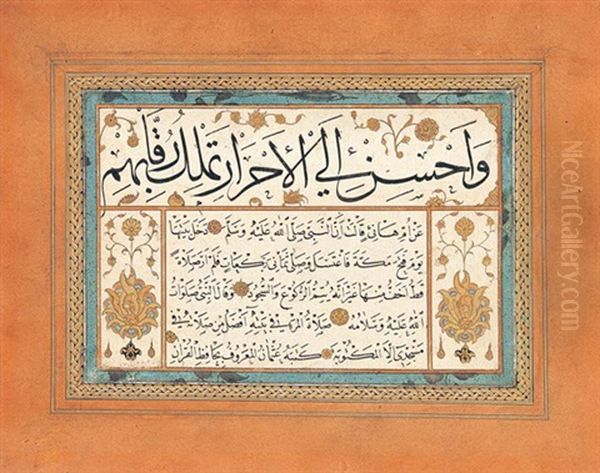 وَاَحْسِنْ اِلَى الْاَحْرَارِ تَمْلِكْ رِقَابَهُمْ
عن ام هانئ قالت ان النبى صلى الله عليه وسلم دخل بيتها
يوم فتح مكة فاغتسل وصلى ثمانى ركعات فلم ار صلاة
قط اخف منها غير انه يتم الركوع والسجود وقال النبى صلوات
الله عليه وسلامه صلاة المرء فى بيته افضل من صلاته فى
مسجدى الا المكتوبة كتبه عثمان المعروف بحافظ القرآن
NiceArtGallery.com